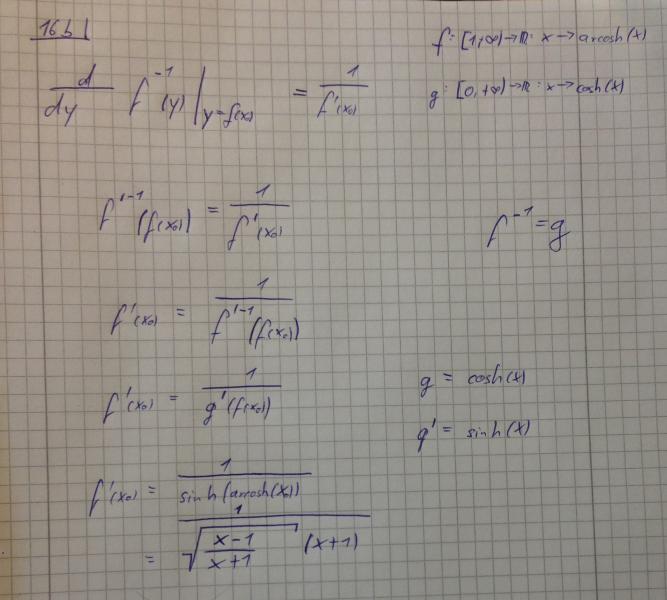 16b)
f: [1,∞)→ℝ: x→arcosh(x)
d/dy f⁻¹(y)|y=f(x₀) = 1/f'(x₀)
g: [0,+∞)→ℝ: x→cosh(x)
f'⁻¹(f(x₀)) = 1/f'(x₀)
f⁻¹=g
f'(x₀) = 1/f'⁻¹(f(x₀))
f'(x₀) = 1/g'(f(x₀))
g = cosh(x)
g' = sinh(x)
f'(x₀) = 1/sinh(arcosh(x₀))
= 1/√((x-1)/(x+1)) (x+1)